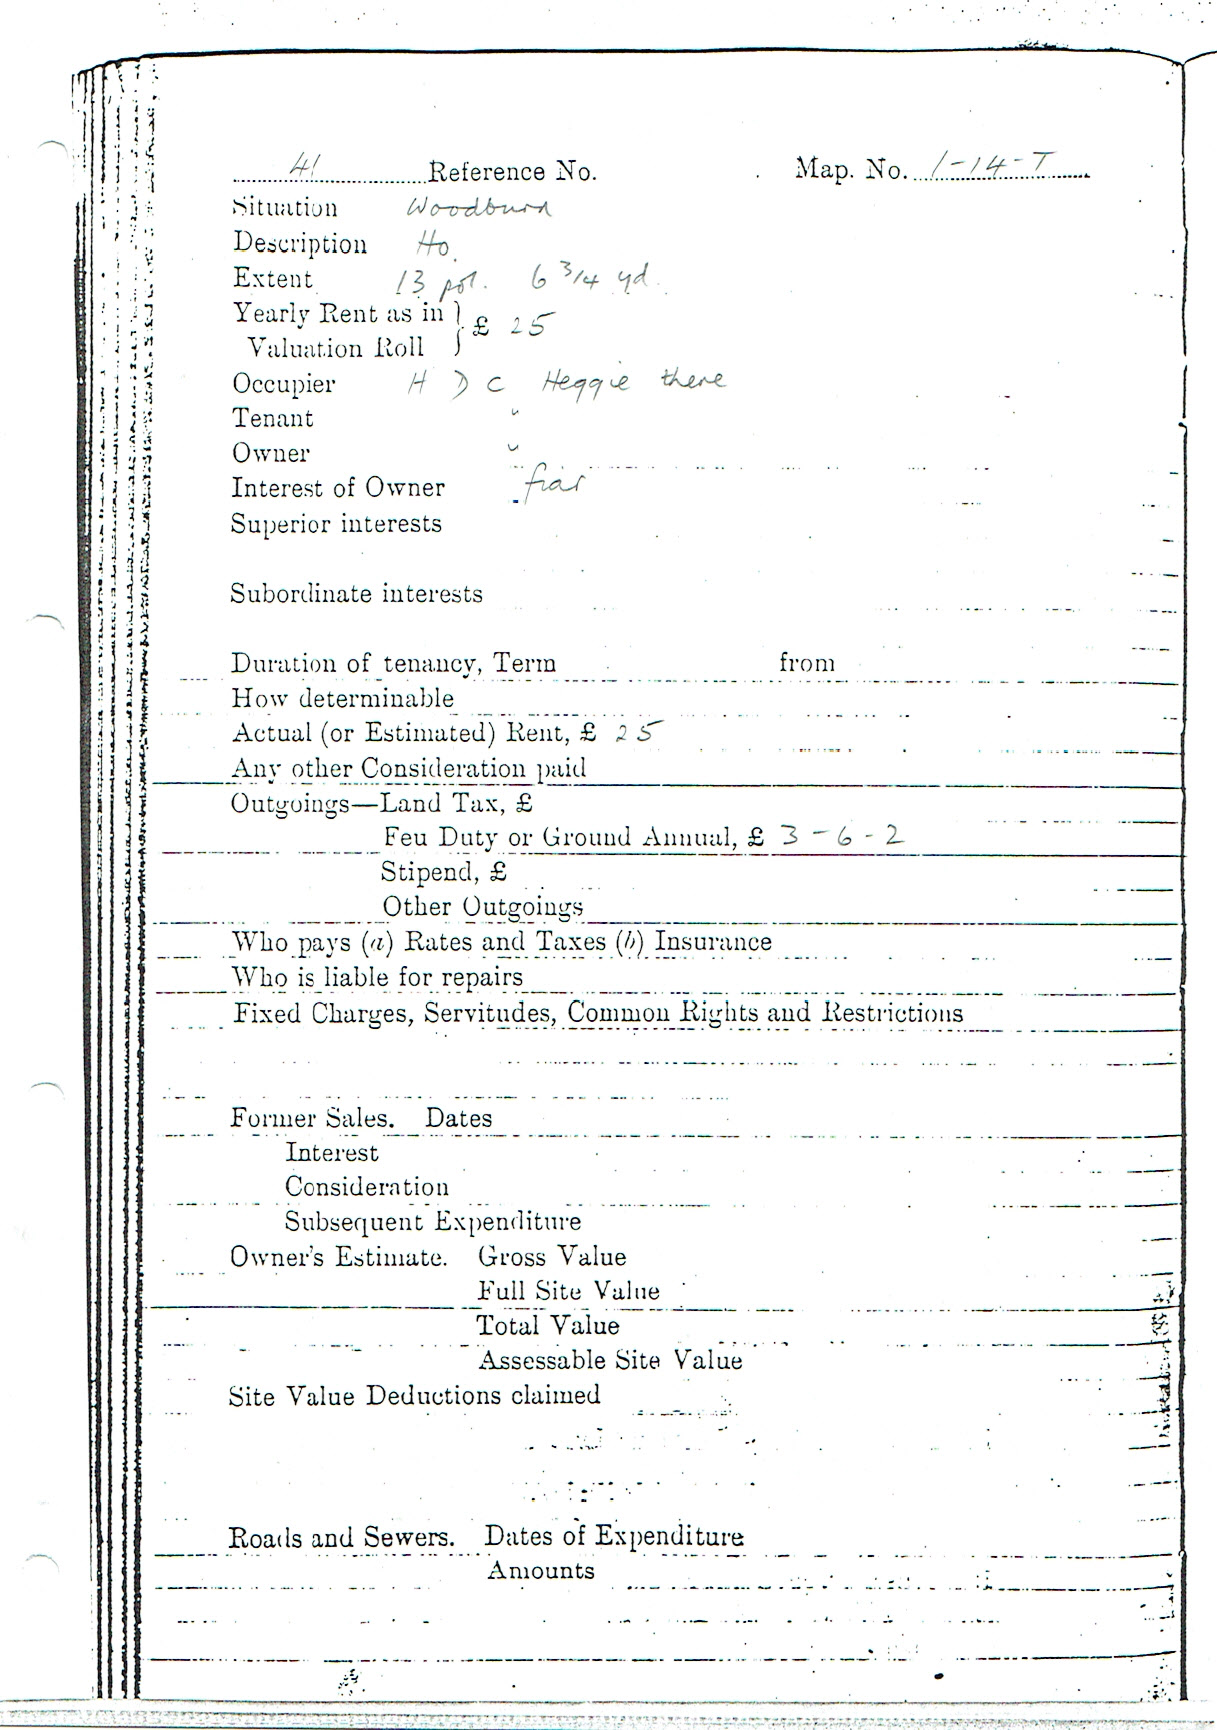 41 Reference No. Map. No. 1-14-T
Situation Woodburn
Description Ho.
Extent 13 pol. 6 3/4 yd.
Yearly Rent as in } £ 25
Valuation Roll
Occupier H D C Heggie there
Tenant "
Owner "
Interest of Owner fiar
Superior interests
Subordinate interests
Duration of tenancy, Term from
How determinable
Actual (or Estimated) Rent, £ 25
Any other Consideration paid
Outgoings—Land Tax, £
Feu Duty or Ground Annual, £ 3-6-2
Stipend, £
Other Outgoings
Who pays (a) Rates and Taxes (b) Insurance
Who is liable for repairs
Fixed Charges, Servitudes, Common Rights and Restrictions
Former Sales. Dates
Interest
Consideration
Subsequent Expenditure
Owner's Estimate. Gross Value
Full Site Value
Total Value
Assessable Site Value
Site Value Deductions claimed
Roads and Sewers. Dates of Expenditure
Amounts